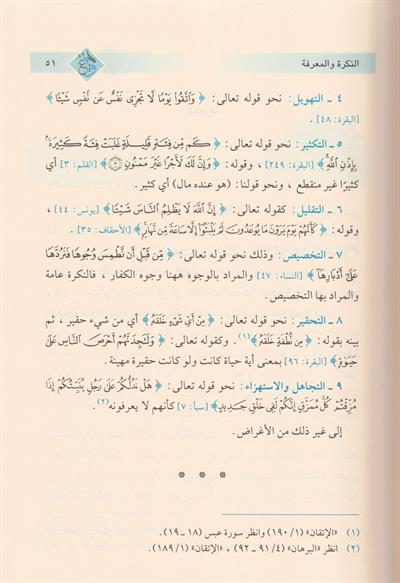 النكرة والمعرفة
٥١
٤ ـ التهويل: نحو قوله تعالى: ﴿ وَاتَّقُوا يَوْمًا لَا تَجْزِي نَفْسٌ عَن نَّفْسٍ شَيْئًا ﴾
[البقرة: ٤٨].
٥ ـ التكثير: نحو قوله تعالى: ﴿ كَم مِّن فِئَةٍ قَلِيلَةٍ غَلَبَتْ فِئَةً كَثِيرَةً
بِإِذْنِ اللَّهِ ﴾ [البقرة: ٢٤٩]، وقوله: ﴿ وَإِنَّ لَكَ لَأَجْرًا غَيْرَ مَمْنُونٍ ٣ ﴾ [القلم: ٣] أي
كثيرًا غير منقطع، ونحو قولنا: (هو عنده مال) أي كثير.
٦ ـ التقليل: كقوله تعالى: ﴿ إِنَّ اللَّهَ لَا يَظْلِمُ النَّاسَ شَيْئًا ﴾ [يونس: ٤٤]،
وقوله: ﴿ كَأَنَّهُمْ يَوْمَ يَرَوْنَ مَا يُوعَدُونَ لَمْ يَلْبَثُوا إِلَّا سَاعَةً مِّن نَّهَارٍ ﴾ [الأحقاف: ٣٥].
٧ ـ التخصيص: وذلك نحو قوله تعالى: ﴿ مِّن قَبْلِ أَن نَّطْمِسَ وُجُوهًا فَنَرُدَّهَا
عَلَىٰ أَدْبَارِهَا ﴾ [النساء: ٤٧] والمراد بالوجوه ههنا وجوه الكفار، فالنكرة عامة
والمراد بها التخصيص.
٨ ـ التحقير: نحو قوله تعالى: ﴿ مِنْ أَيِّ شَيْءٍ خَلَقَهُ ﴾ أي من شيء حقير، ثم
بينه بقوله: ﴿ مِن نُّطْفَةٍ خَلَقَهُ ﴾(١). وكقوله تعالى: ﴿ وَلَتَجِدَنَّهُمْ أَحْرَصَ النَّاسِ عَلَىٰ
حَيَوٰةٍ ﴾ [البقرة: ٩٦] بمعنى أية حياة كانت ولو كانت حقيرة مهينة.
٩ ـ التجاهل والاستهزاء: نحو قوله تعالى: ﴿ هَلْ نَدُلُّكُمْ عَلَىٰ رَجُلٍ يُنَبِّئُكُمْ إِذَا
مُزِّقْتُمْ كُلَّ مُمَزَّقٍ إِنَّكُمْ لَفِي خَلْقٍ جَدِيدٍ ﴾ [سبأ: ٧] كأنهم لا يعرفونه(٢).
إلى غير ذلك من الأغراض.
* * *
(١) «الإتقان» (١/ ١٩٠) وانظر سورة عبس (١٨ ـ ١٩).
(٢) انظر «البرهان» (٤/ ٩١ ـ ٩٢)، «الإتقان» (١/ ١٨٩).